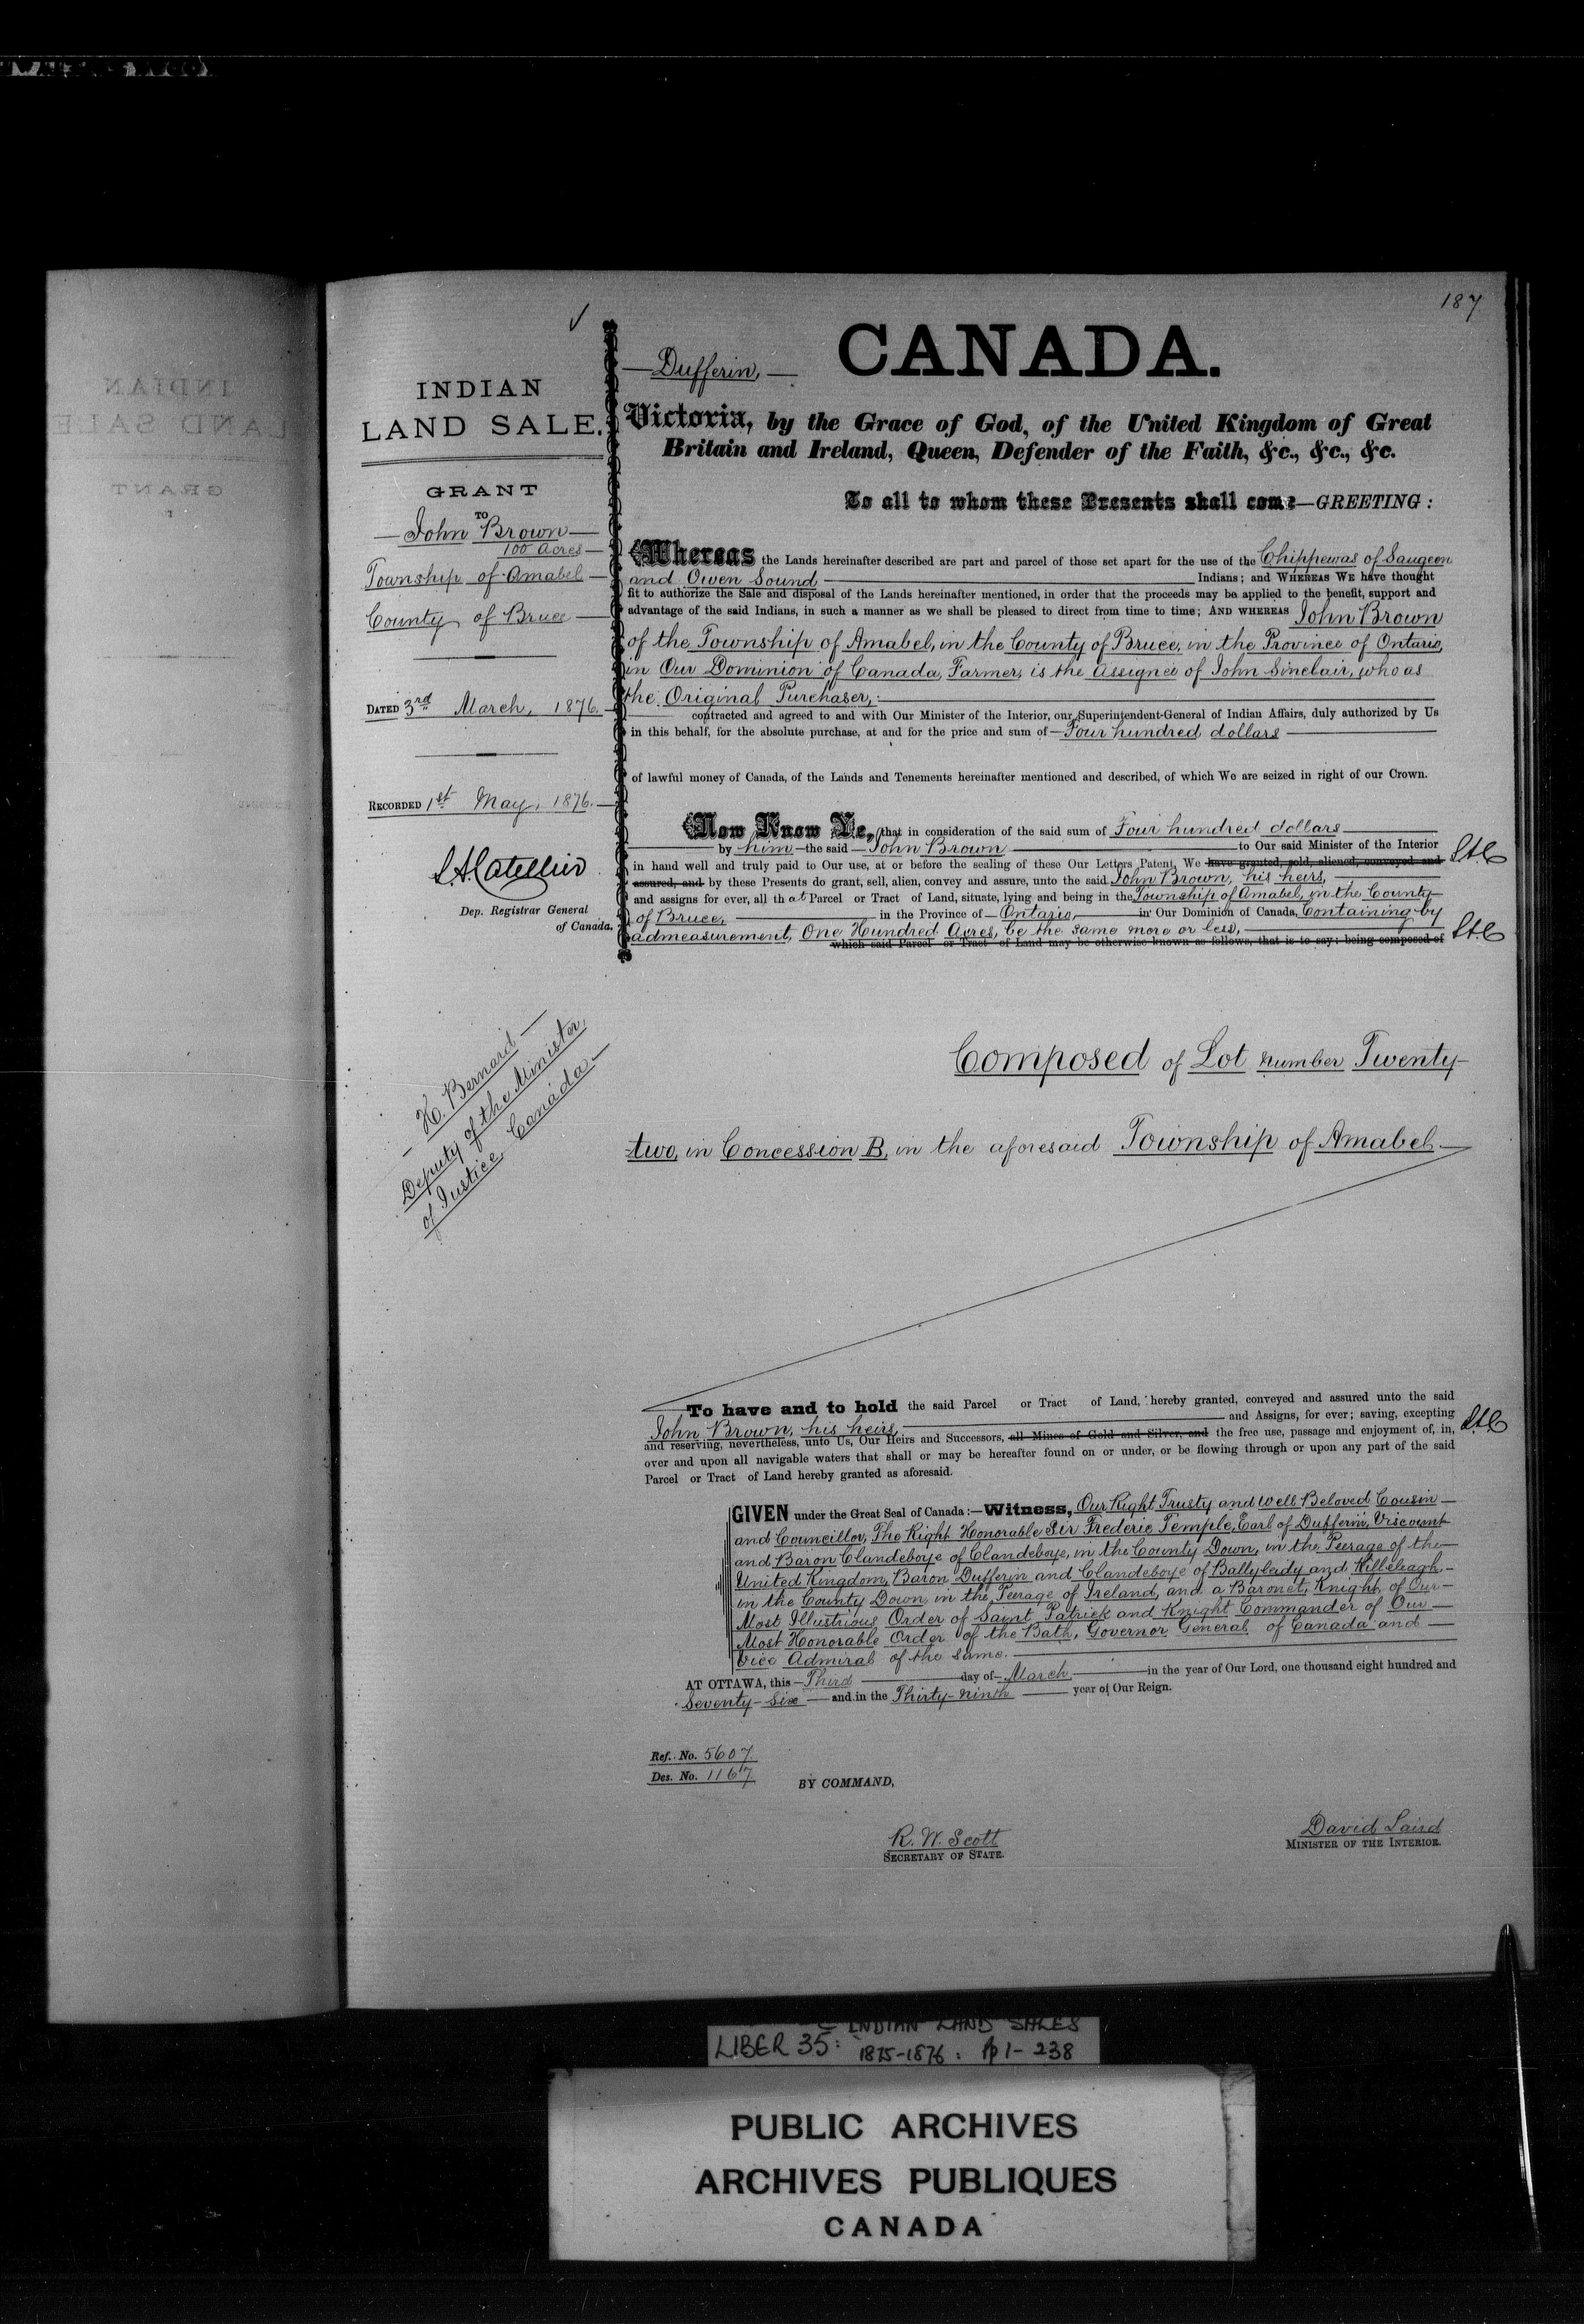 187
CANADA.
Dufferin,
INDIAN
LAND SALE.
Victoria, by the Grace of God, of the United Kingdom of Great
Britain and Ireland, Queen, Defender of the Faith, &c., &c., &c.
To all to whom these Presents shall come—GREETING:
GRANT
TO
John Brown
100 Acres
Township of Amabel
County of Bruce
DATED 3rd March, 1876.
RECORDED 1st May, 1876.
Dep. Registrar General
of Canada.
H. Bernard
Deputy of the Minister
of Justice Canada
Whereas the Lands hereinafter described are part and parcel of those set apart for the use of the Chippewas of Saugeen
and Owen Sound Indians; and WHEREAS WE have thought
fit to authorize the Sale and disposal of the Lands hereinafter mentioned, in order that the proceeds may be applied to the benefit, support and
advantage of the said Indians, in such a manner as we shall be pleased to direct from time to time; AND WHEREAS John Brown
of the Township of Amabel, in the County of Bruce, in the Province of Ontario,
in Our Dominion of Canada, Farmer, is the Assignee of John Sinclair, who as
the Original Purchaser,
contracted and agreed to and with Our Minister of the Interior, our Superintendent-General of Indian Affairs, duly authorized by Us
in this behalf, for the absolute purchase, at and for the price and sum of Four hundred dollars
of lawful money of Canada, of the Lands and Tenements hereinafter mentioned and described, of which We are seized in right of our Crown.
Now Know Ye, that in consideration of the said sum of Four hundred dollars
by him the said John Brown to Our said Minister of the Interior
in hand well and truly paid to Our use, at or before the sealing of these Our Letters Patent, We have granted, sold, aliened, conveyed and
assured, and by these Presents do grant, sell, alien, convey and assure, unto the said John Brown, his heirs,
and assigns for ever, all that Parcel or Tract of Land, situate, lying and being in the Township of Amabel, in the County
of Bruce, in the Province of Ontario, in Our Dominion of Canada, Containing by
admeasurement, One Hundred Acres, be the same more or less,
which said Parcel or Tract of Land may be otherwise known as follows, that is to say: being composed of
Composed of Lot number Twenty-
two, in Concession B, in the aforesaid Township of Amabel.
To have and to hold the said Parcel or Tract of Land, hereby granted, conveyed and assured unto the said
John Brown, his heirs, and Assigns, for ever; saving, excepting
and reserving, nevertheless, unto Us, Our Heirs and Successors, all Mines of Gold and Silver, and the free use, passage and enjoyment of, in,
over and upon all navigable waters that shall or may be hereafter found on or under, or be flowing through or upon any part of the said
Parcel or Tract of Land hereby granted as aforesaid.
GIVEN under the Great Seal of Canada:—Witness, Our Right Trusty and Well Beloved Cousin
and Councillor, The Right Honorable Sir Frederic Temple, Earl of Dufferin, Viscount
and Baron Clandeboye of Clandeboye, in the County Down, in the Peerage of the
United Kingdom, Baron Dufferin and Clandeboye of Ballyleidy and Killeleagh
in the County Down in the Peerage of Ireland, and a Baronet, Knight of Our
Most Illustrious Order of Saint Patrick and Knight Commander of Our
Most Honorable Order of the Bath, Governor General of Canada and
Vice Admiral of the same.
AT OTTAWA, this Third day of March in the year of Our Lord, one thousand eight hundred and
Seventy-Six and in the Thirty-ninth year of Our Reign.
Ref. No. 5607.
Des. No. 1167.
BY COMMAND,
R. W. Scott
SECRETARY OF STATE.
David Laird
MINISTER OF THE INTERIOR.
INDIAN LAND SALES
LIBER 35: 1875-1876: pp 1-238
PUBLIC ARCHIVES
ARCHIVES PUBLIQUES
CANADA